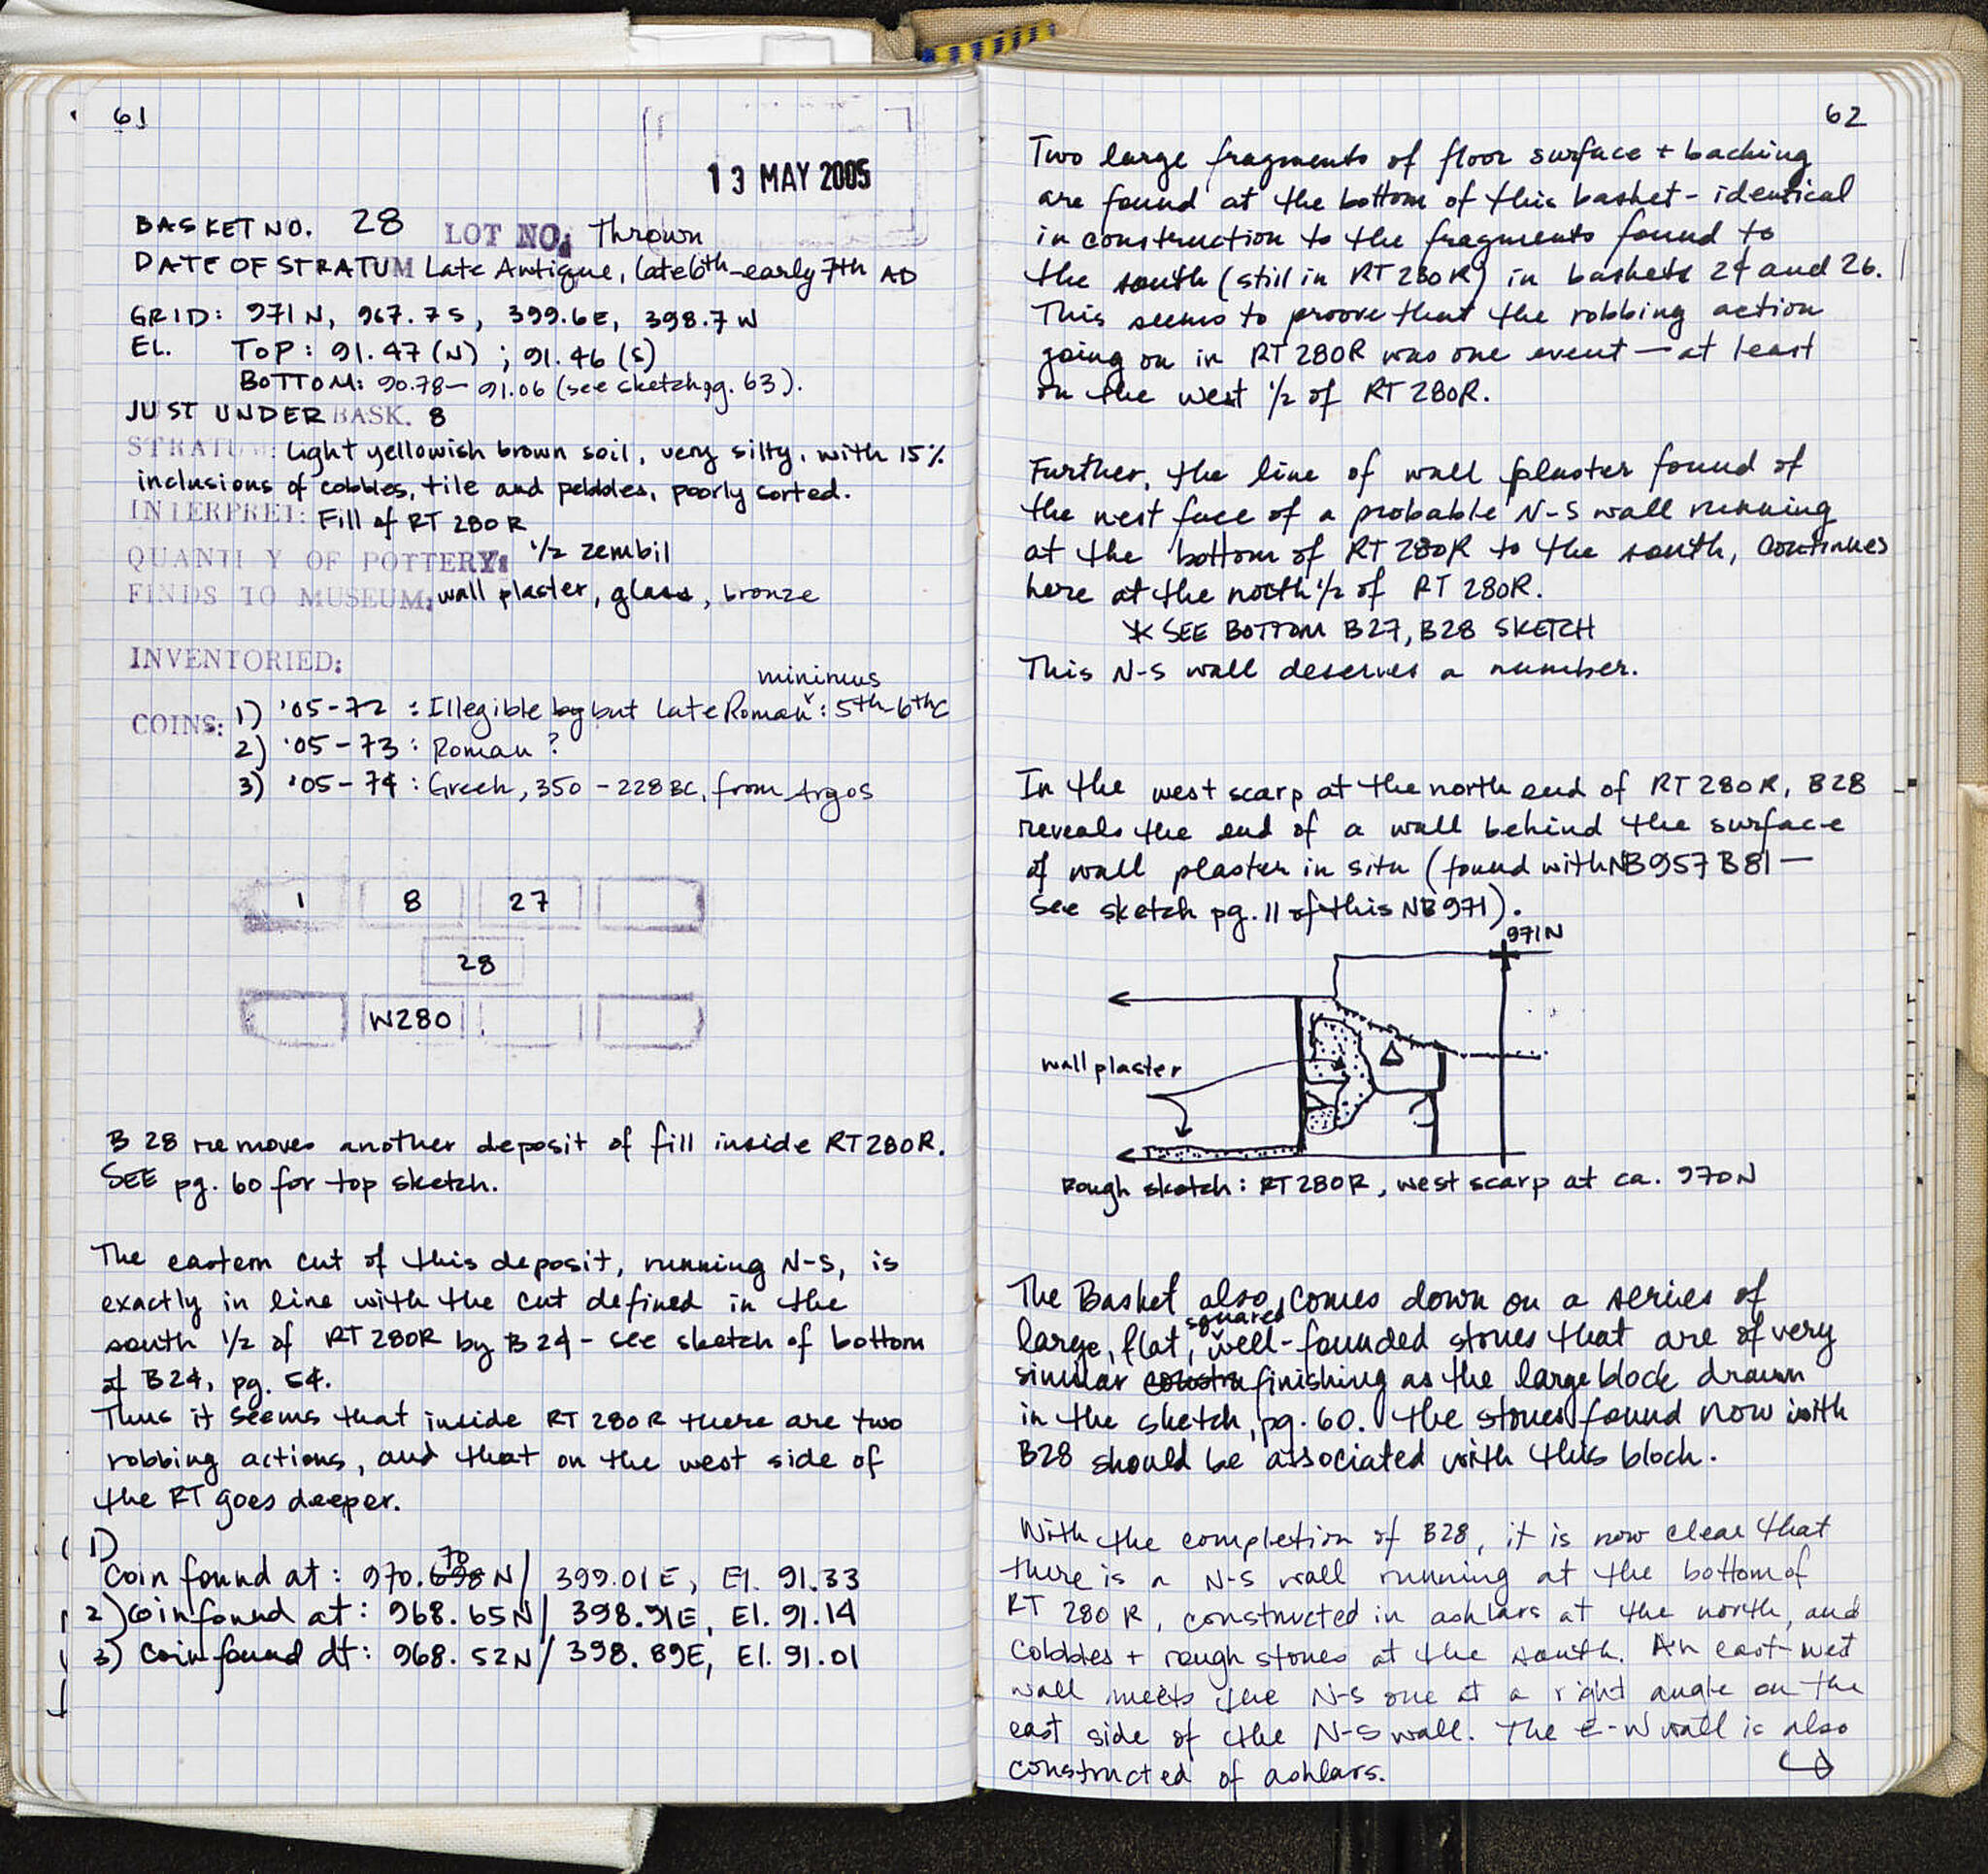 61
13 MAY 2005
BASKET NO. 28 LOT NO. Thrown
DATE OF STRATUM Late Antique, late 6th-early 7th AD
GRID: 971 N, 967.7 S, 399.6 E, 398.7 W
EL. TOP: 91.47 (N) ; 91.46 (S)
BOTTOM: 90.78 – 91.06 (see sketch pg. 63).
JUST UNDER BASK. 8
STRATUM: Light yellowish brown soil, very silty, with 15%
inclusions of cobbles, tile and pebbles, poorly sorted.
INTERPRET: Fill of RT 280 R
QUANTI Y OF POTTERY: 1/2 zembil
FINDS TO MUSEUM: wall plaster, glass, bronze
INVENTORIED:
minimus
COINS: 1) '05-72 : Illegible by but Late Roman ᵛ: 5th-6thC
2) '05-73 : Roman ?
3) '05-74 : Greek, 350 - 228 BC, from Argos
1 8 27
28
W280
B 28 removes another deposit of fill inside RT 280R.
SEE pg. 60 for top sketch.
The eastern cut of this deposit, running N-S, is
exactly in line with the cut defined in the
south 1/2 of RT 280R by B24 - see sketch of bottom
of B24, pg. 54.
Thus it seems that inside RT 280R there are two
robbing actions, and that on the west side of
the RT goes deeper.
1)
70
Coin found at: 970.698 N/ 399.01 E, El. 91.33
2) coin found at: 968.65N/ 398.91E, El. 91.14
3) Coin found at: 968.52N/ 398.89E, El. 91.01
62
Two large fragments of floor surface + backing
are found at the bottom of this basket - identical
in construction to the fragments found to
the south (still in RT 280R) in baskets 24 and 26.
This seems to proove that the robbing action
going on in RT 280R was one event — at least
on the west 1/2 of RT 280R.
Further, the line of wall plaster found of
the west face of a probable N-S wall running
at the bottom of RT 280R to the south, continues
here at the north 1/2 of RT 280R.
* SEE BOTTOM B27, B28 SKETCH
This N-S wall deserves a number.
In the west scarp at the north end of RT 280R, B28
reveals the end of a wall behind the surface
of wall plaster in situ (found with NB957 B81 —
See sketch pg. 11 of this NB 971).
971N
wall plaster
Rough sketch: RT 280R, west scarp at ca. 970N
The Basket also comes down on a series of
squared
large, flat, well-founded stones that are of very
similar constru finishing as the large block drawn
in the sketch, pg. 60. The stones found now with
B28 should be associated with this block.
With the completion of B28, it is now clear that
there is a N-S wall running at the bottom of
RT 280 R, constructed in ashlars at the north, and
cobbles + rough stones at the south. An east-west
wall meets the N-S one at a right angle on the
east side of the N-S wall. The E-W wall is also
constructed of ashlars.